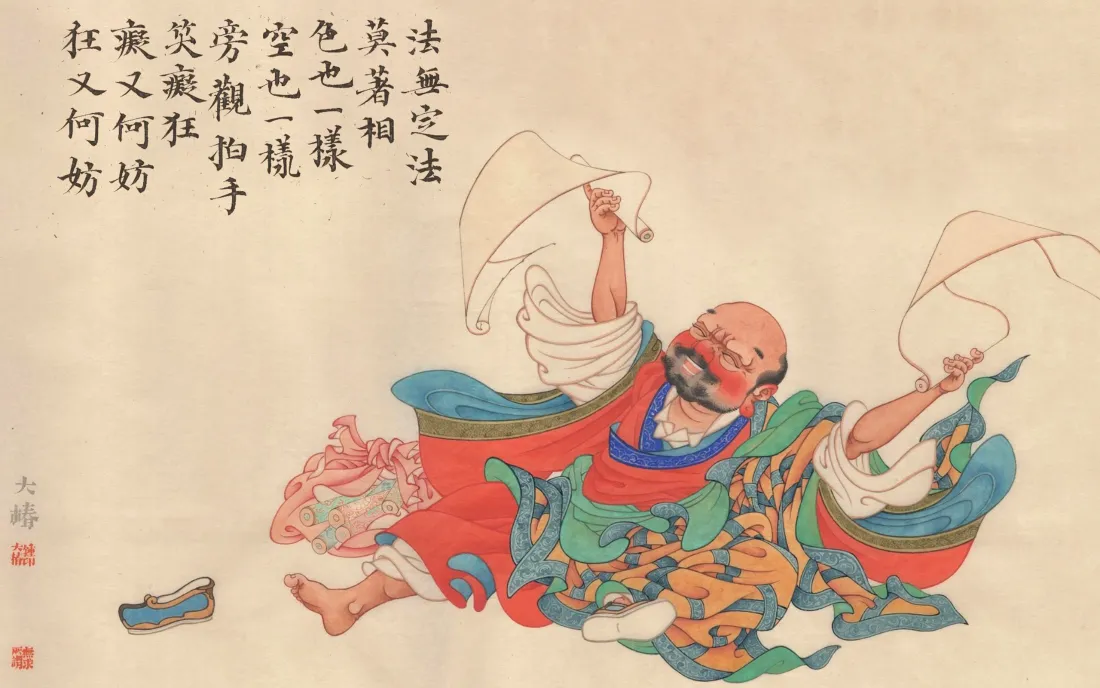 法無定法
莫著相
色也一樣
空也一樣
旁觀拍手
笑癡狂
癡又何妨
狂又何妨
大椿